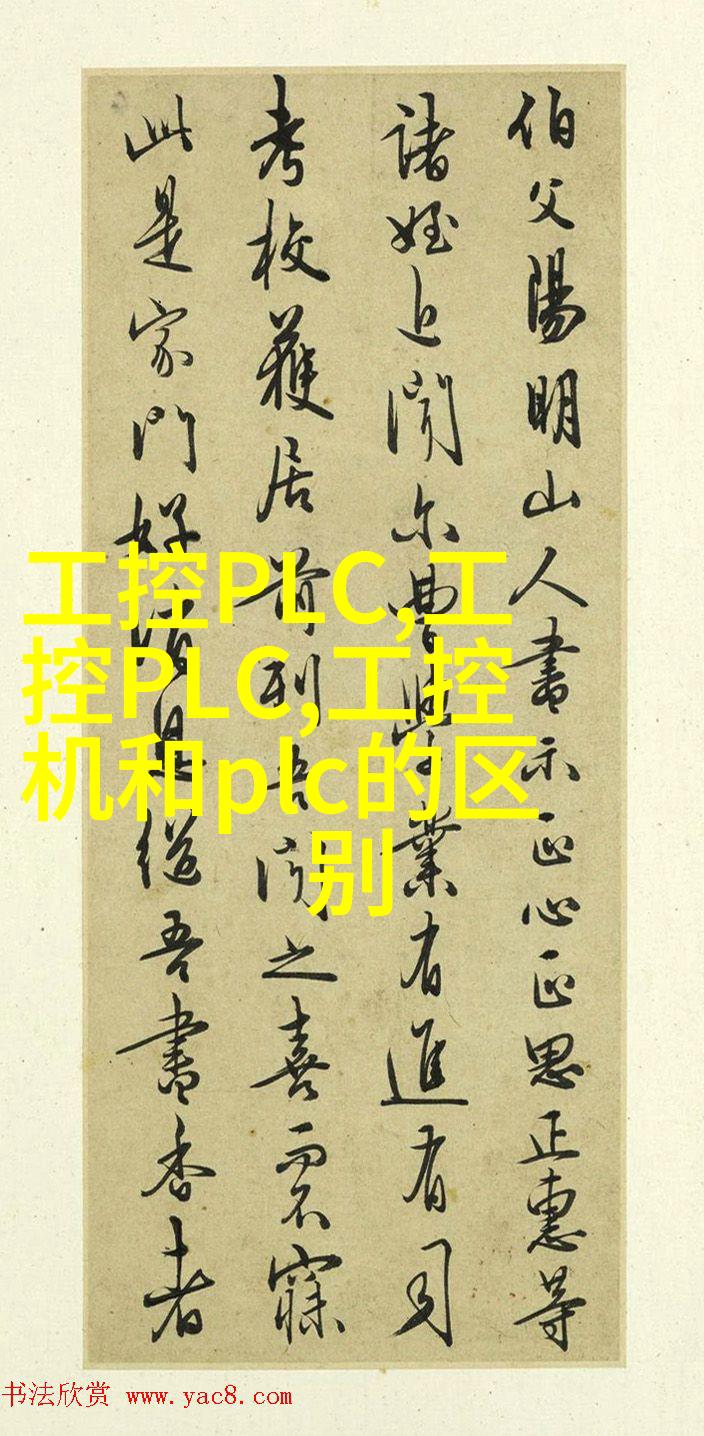 伯父陽明山人書示正心正思正惠等
諸姪近聞尔曹學業有進有司
考校獲居前列吾聞之喜而不寐
此是家門好消息繼吾書香者
工控PLC,工
控PLC,工控
机和plc的区
别
书法欣赏 www.yac8.com